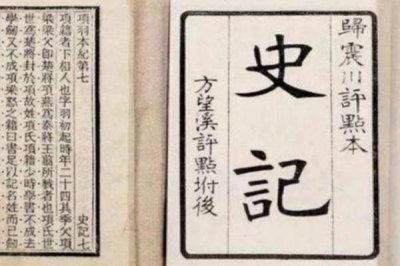 歸震川評點本
史記
方望溪評點坿後
項羽本紀第七 史記七
項籍者下相人也字羽初起時年二十四其季父項
梁梁父即楚將項燕爲秦將王翦所戮者也項氏世
世爲楚將封於項故姓項氏項籍少時學書不成去
學劍又不成項梁怒之籍曰書足以記名姓而已劍